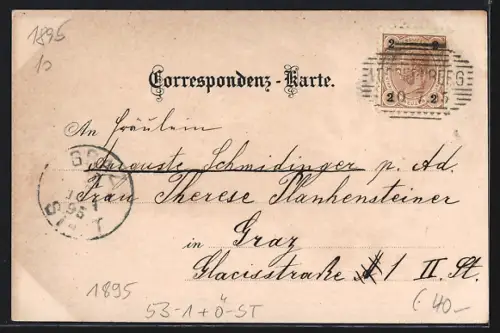 1895
10
2 2
2 2
Correspondenz-Karte.
An Fräulein
Auguste Schmidinger p. Ad.
Frau Therese Plankensteiner
in Graz
Glacisstraße 1 II. St.
GRAZ
95
STADT
1895
53-1+Ö-ST
40-